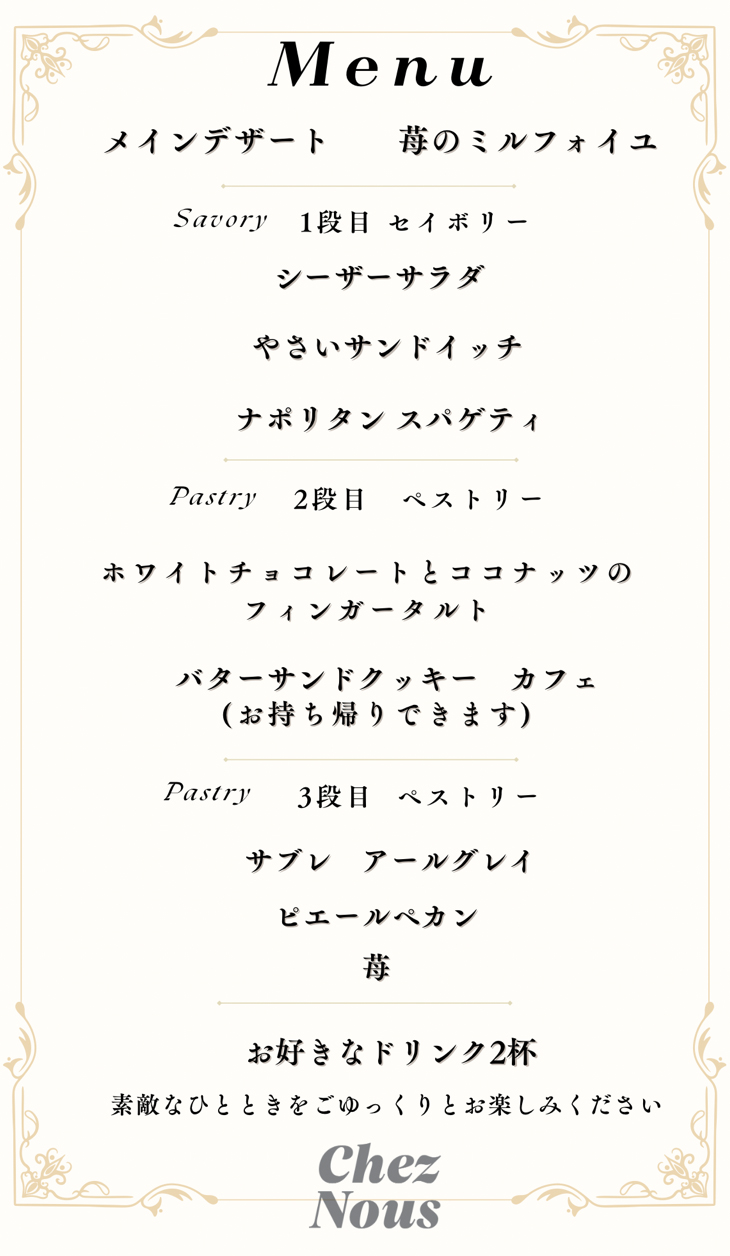 Menu
メインデザート　苺のミルフォイユ
Savory　1段目 セイボリー
シーザーサラダ
やさいサンドイッチ
ナポリタン スパゲティ
Pastry　2段目　ペストリー
ホワイトチョコレートとココナッツの
フィンガータルト
バターサンドクッキー　カフェ
(お持ち帰りできます)
Pastry　3段目　ペストリー
サブレ　アールグレイ
ピエールペカン
苺
お好きなドリンク2杯
素敵なひとときをごゆっくりとお楽しみください
Chez
Nous